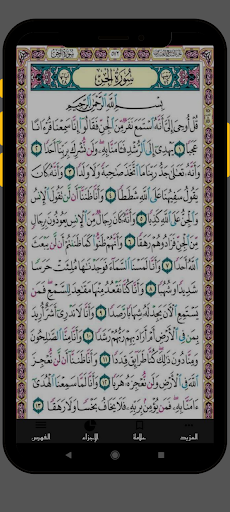 سُورَةُ الجِنِّ
بِسْمِ اللَّهِ الرَّحْمَٰنِ الرَّحِيمِ
قُلْ أُوحِىَ إِلَىَّ أَنَّهُ ٱسْتَمَعَ نَفَرٌ مِّنَ ٱلْجِنِّ فَقَالُوٓا۟ إِنَّا سَمِعْنَا قُرْءَانًا
عَجَبًا ١ يَهْدِىٓ إِلَى ٱلرُّشْدِ فَـَٔامَنَّا بِهِۦ وَلَن نُّشْرِكَ بِرَبِّنَآ أَحَدًا ٢
وَأَنَّهُۥ تَعَٰلَىٰ جَدُّ رَبِّنَا مَا ٱتَّخَذَ صَٰحِبَةً وَلَا وَلَدًا ٣ وَأَنَّهُۥ كَانَ
يَقُولُ سَفِيهُنَا عَلَى ٱللَّهِ شَطَطًا ٤ وَأَنَّا ظَنَنَّآ أَن لَّن تَقُولَ ٱلْإِنسُ
وَٱلْجِنُّ عَلَى ٱللَّهِ كَذِبًا ٥ وَأَنَّهُۥ كَانَ رِجَالٌ مِّنَ ٱلْإِنسِ يَعُوذُونَ بِرِجَالٍ
مِّنَ ٱلْجِنِّ فَزَادُوهُمْ رَهَقًا ٦ وَأَنَّهُمْ ظَنُّوا۟ كَمَا ظَنَنتُمْ أَن لَّن يَبْعَثَ
ٱللَّهُ أَحَدًا ٧ وَأَنَّا لَمَسْنَا ٱلسَّمَآءَ فَوَجَدْنَٰهَا مُلِئَتْ حَرَسًا
شَدِيدًا وَشُهُبًا ٨ وَأَنَّا كُنَّا نَقْعُدُ مِنْهَا مَقَٰعِدَ لِلسَّمْعِ فَمَن
يَسْتَمِعِ ٱلْـَٔانَ يَجِدْ لَهُۥ شِهَابًا رَّصَدًا ٩ وَأَنَّا لَا نَدْرِىٓ أَشَرٌّ أُرِيدَ
بِمَن فِى ٱلْأَرْضِ أَمْ أَرَادَ بِهِمْ رَبُّهُمْ رَشَدًا ١٠ وَأَنَّا مِنَّا ٱلصَّٰلِحُونَ
وَمِنَّا دُونَ ذَٰلِكَ كُنَّا طَرَآئِقَ قِدَدًا ١١ وَأَنَّا ظَنَنَّآ أَن لَّن نُّعْجِزَ
ٱللَّهَ فِى ٱلْأَرْضِ وَلَن نُّعْجِزَهُۥ هَرَبًا ١٢ وَأَنَّا لَمَّا سَمِعْنَا ٱلْهُدَىٰٓ
ءَامَنَّا بِهِۦ فَمَن يُؤْمِنۢ بِرَبِّهِۦ فَلَا يَخَافُ بَخْسًا وَلَا رَهَقًا ١٣
المزيد علامة الأجزاء الفهرس